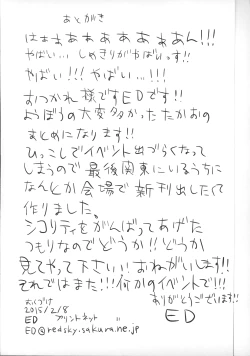 あとがき
はぁぁぁぁぁぁぁぁぁん!!!
やばい… しめきりがやばいっす!!
やばい!!! やばい…!!!
おつかれ様ですEDです!!
ようぼうの大変多かったたかおの
まとめになります!!
ひっこしでイベント出づらくなって
しまうので最後関東にいるうちに
なんとか会場で新刊出したくて
作りました。
シコリティをがんばってあげた
つもりなのでどうか!!どうか
見てやって下さい!!おねがいします!!
それではまた!!!何かのイベントで!!!
ありがとうございます!!
おくづけ
2015/2/8
ED プリントネット
ED@redsky.sakura.ne.jp
ED